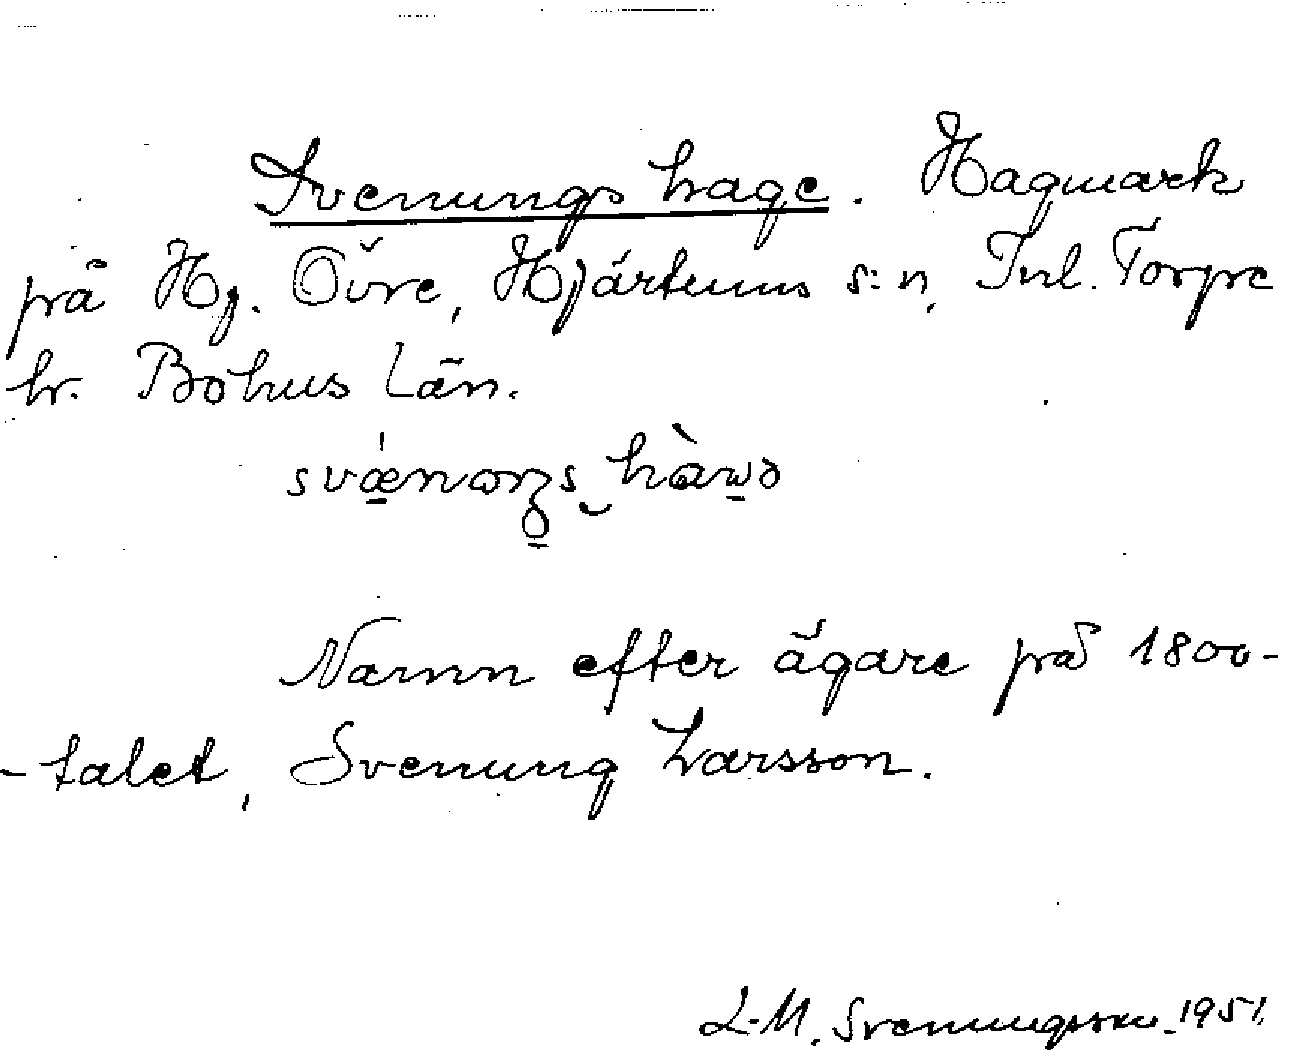 Svenungs hage. Hagmark
på Hg. Övre, Hjärtums s:n, Inl. Torpe
hr. Bohus Län.
Namn efter ägare på 1800-
-talet, Svenung Larsson.
L-M. Svenungsson 1951.